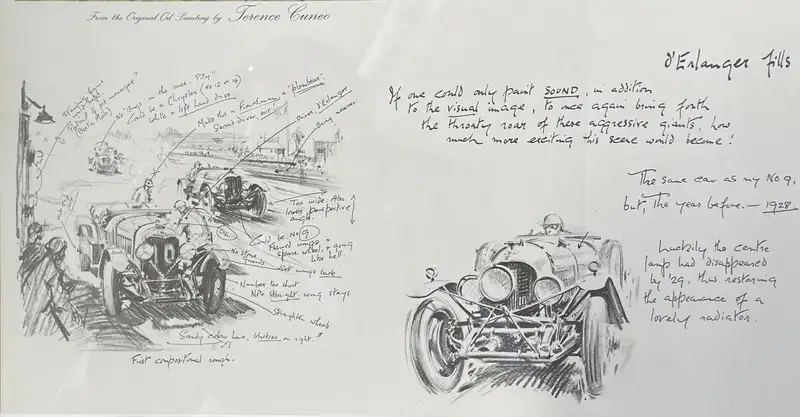 From the Original Oil Painting by Terence Cuneo
d'Erlanger fills
If one could only paint SOUND, in addition
to the visual image, to once again bring forth
the throaty roar of these aggressive giants, how
much more exciting this scene would become!
The same car as my No 9,
but, the year before. — 1928.
Luckily the centre
lamp had disappeared
by '29, thus restoring
the appearance of a
lovely radiator.
No 'chugs' in the race. Pity.
Could be a Chrysler (No 12 or 14)
White & left hand drive
Make this a Frenchman & "plombeur".
Second driver our
Driver. d'Erlanger
Bring nearer.
Too wide. Also
lower perspective
angle.
Could be No 9
Flared wings, +
spare wheel, + going
like hell.
OK
No stone
guards
Set wings back
Number too short
Note straight wing stays
Straighten wheels
10
Sandy colour here, bluetrees on right.
First compositional rough.